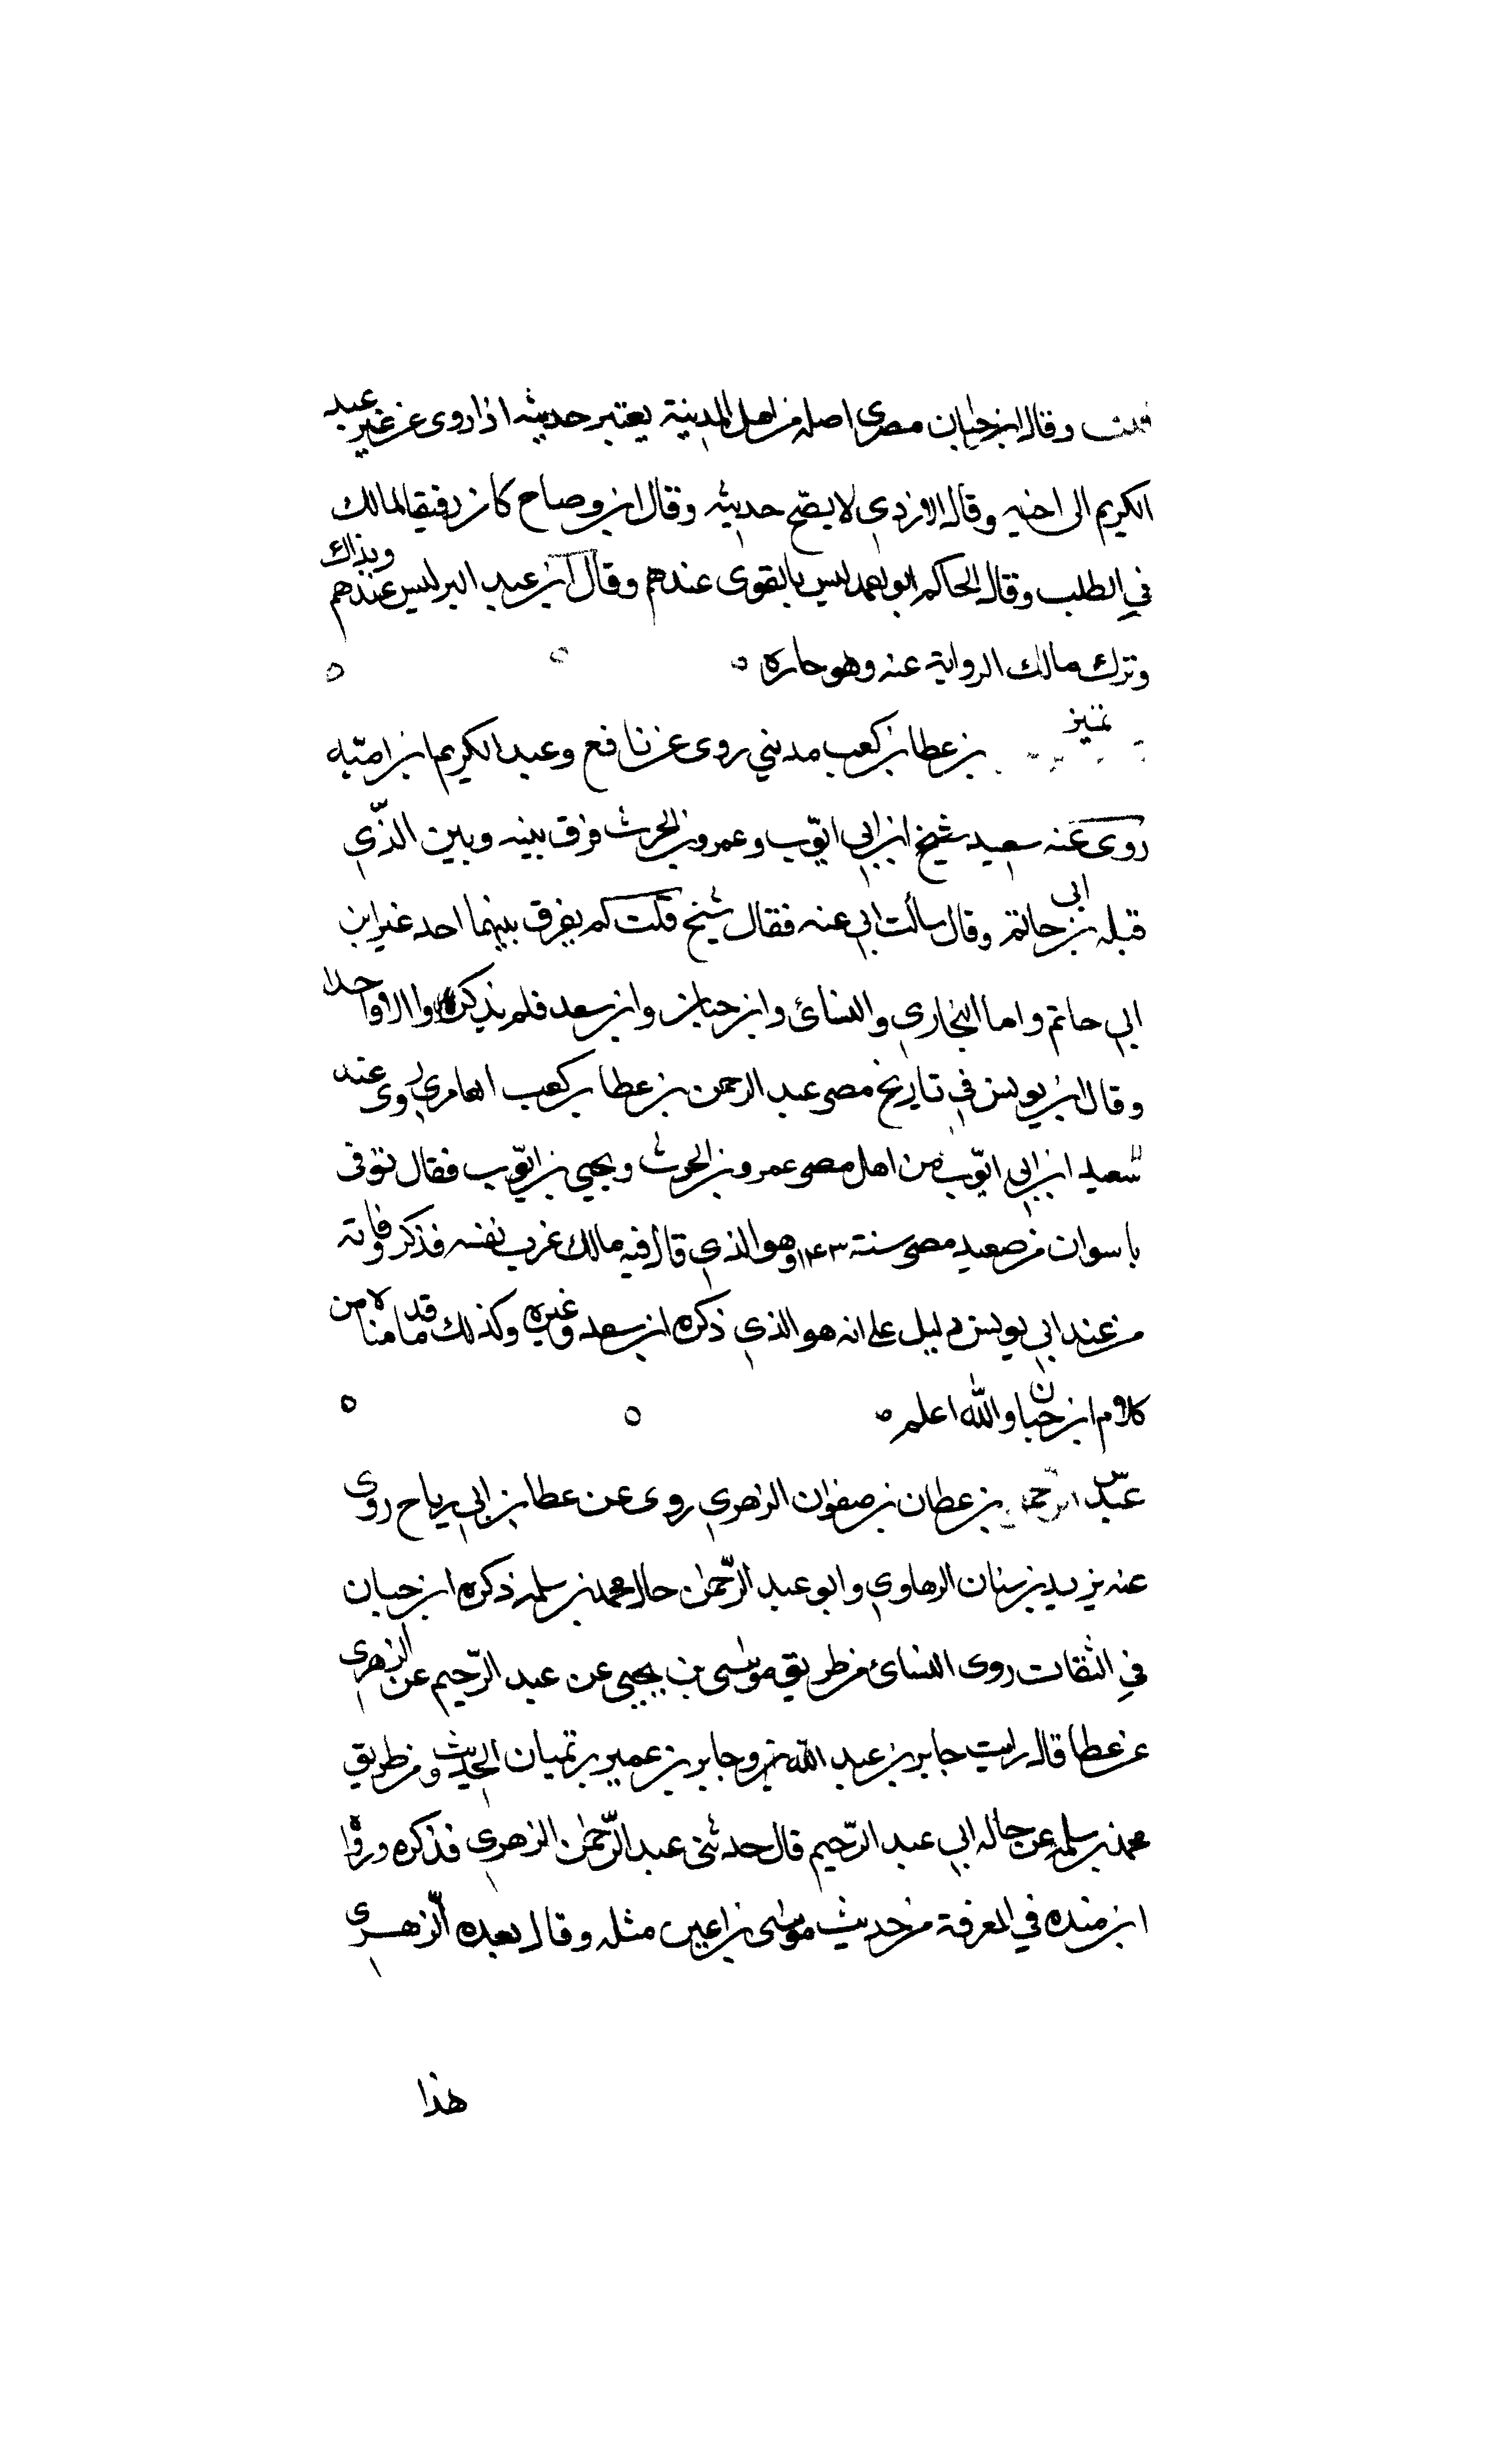 قلت وقال ابن حبان مصري اصله من اهل المدينة يعتبر حديثه اذا روى عن غير عبد
الكريم الى اخيه وقال الازدي لا يصح حديثه وقال ابن وضاح كان رفيقا لمالك
في الطلب وقال الحاكم ابو احمد ليس بالقوى عندهم وقال ابن عبد البر ليس عندهم وبذاك
وترك مالك الرواية عنه وهو جاره ه
تمييز بن عطا بن كعب مديني روى عن نافع وعبد الكريم ابن اميّه
روى عنه سعيد شيخ ابن ابي ايّوب وعمرو بن الحرث فرق بينه وبين الذّي
قبله بن ابى حاتم وقال سألت ابي عنه فقال شيخ قلت لم يفرق بينهما احد غير ابن
ابي حاتم واما البخاري والنسائ وابن حبان وابن سعد فلم يذكروا الا واحدا
وقال ابن يونس في تاريخ مصر عبد الرحمن بن عطا بن كعب العامري روى عنه
سعيد ابن ابي ايّوب من اهل مصر عمرو بن الحرث ويحيى بن ايّوب فقال توفى
باسوان من صعيد مصر سنة ١٤٣ وهو الذي قال فيه مالك غرب نفسه فذكر وفاته
من عند ابي يونس دليل على انه هو الذي ذكره ابن سعد وغيره وكذلك قد مامنا لا من
كلام ابن حبان والله اعلم ه
عبد الرحمن بن عطان بن صفوان الزهري روى عن عطا بن ابي رياح روى
عنه يزيد بن سنان الرهاوي وابو عبد الرّحمن حال محمد بن سلمه ذكره ابن حبان
في الثقات روى النسائ من طريق موسى بن يحيى عن عبد الرّحيم عن الزهرى
عن عطا قال رايت جابر بن عبد الله بن وجابر بن عمير يرتميان الحديث ومن طريق
محمد بن سلمه عن حاله ابي عبد الرّحيم قال حدثني عبد الرّحمن الزهري فذكره ورواه
ابن منده في المعرفة من حديث موسى بن اعين مثله وقال بعده الزهرى
هذا